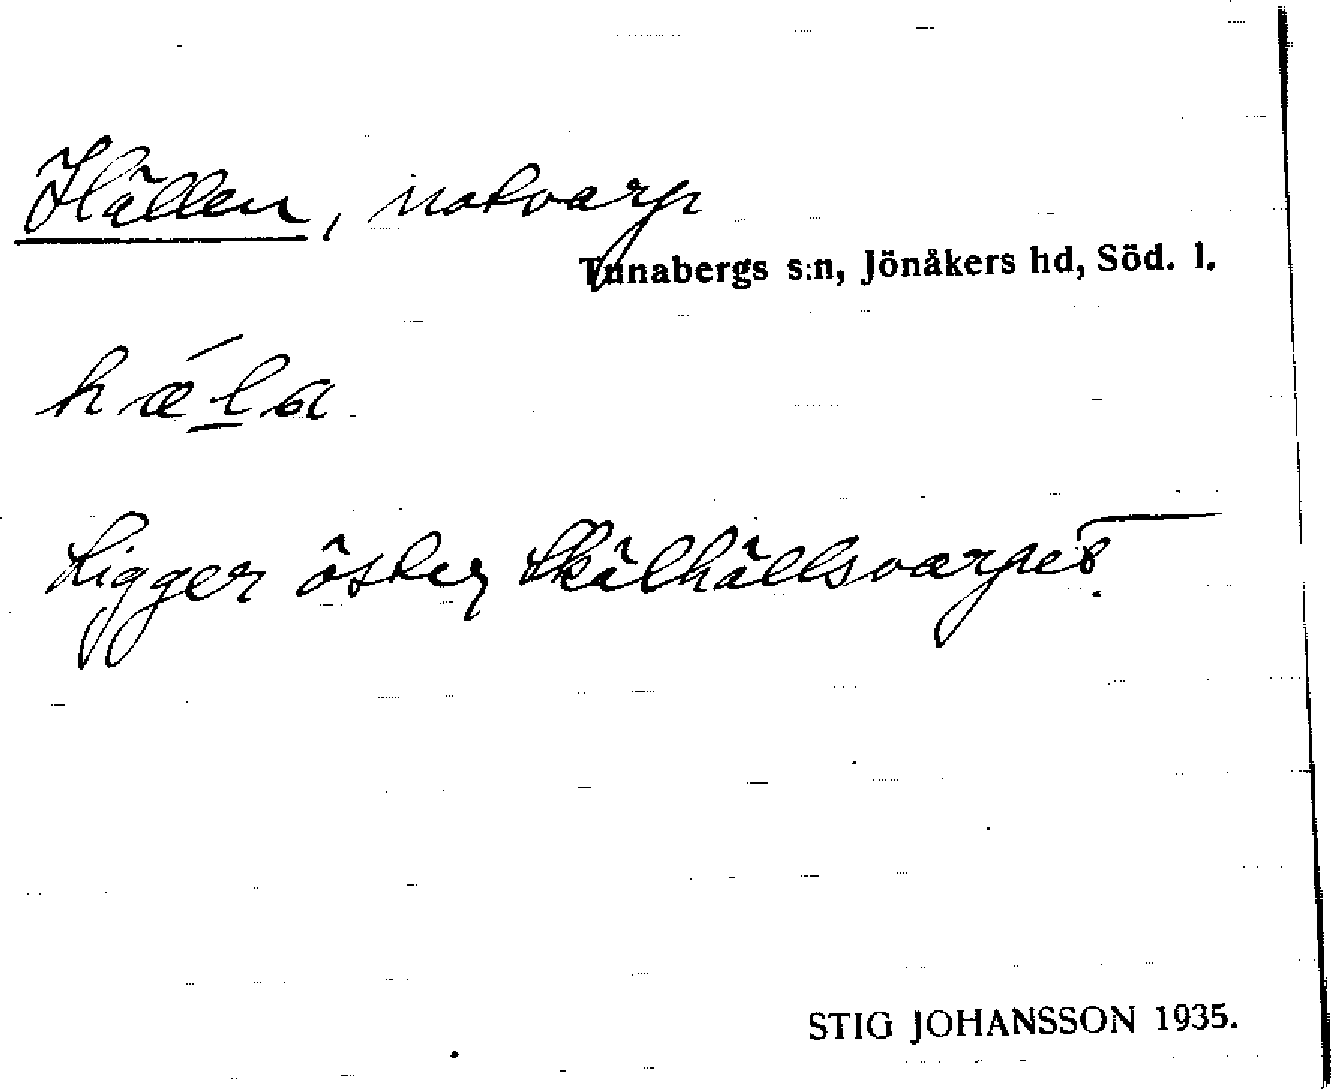 Hällen, notvarp
Tunabergs s:n, Jönåkers hd, Söd. l.
hǽla
Ligger öster Skälhällsvarpet.
STIG JOHANSSON 1935.